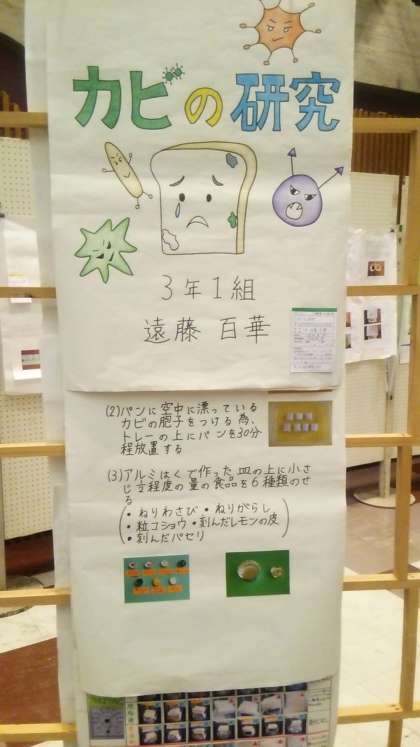 カビの研究
3年1組
遠藤 百華
(2)パンに空中に漂っている
カビの胞子をつける為、
トレーの上にパンを30分
程放置する
(3)アルミはくで作った皿の上に小さ
じ寸程度の量の食品を6種類のせ
る
・ねりわさび・ねりがらし
・粒コショウ・刻んだレモンの皮
・刻んだパセリ